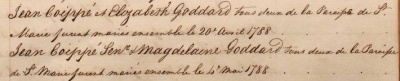 Jean Coippé & Elozabeth Goddard tous deux de la Paroipe de St.
Marie furent mariés ensemble le 20e. Avril 1788
Jean Coippé Senr. & Magdelaine Goddard tous deux de la Paroipe
de St. Marie furent mariés ensemble le 4e. Mai 1788